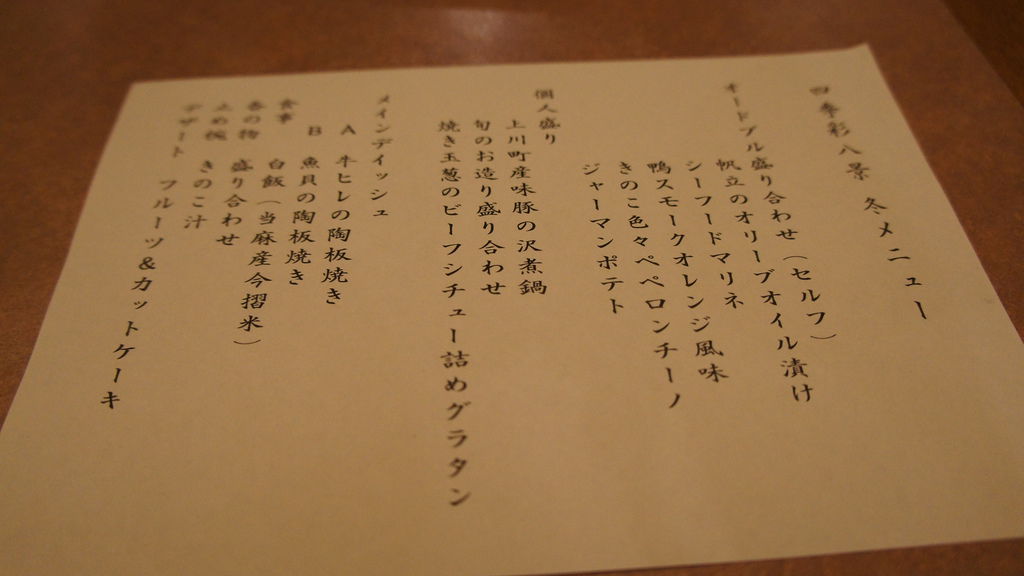 四季彩八景 冬メニュー
オードブル盛り合わせ（セルフ）
帆立のオリーブオイル漬け
シーフードマリネ
鴨スモークオレンジ風味
きのこ色々ペペロンチーノ
ジャーマンポテト
個人盛り
上川町産味豚の沢煮鍋
旬のお造り盛り合わせ
焼き玉葱のビーフシチュー詰めグラタン
メインデイッシュ
A 牛ヒレの陶板焼き
B 魚貝の陶板焼き
食事 白飯（当麻産今摺米）
香の物 盛り合わせ
止め椀 きのこ汁
デザート フルーツ&カットケーキ